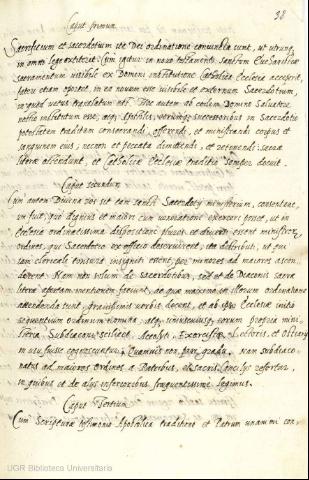 38
Caput primum
Sacrificium et sacerdotium ita Dei ordinatione coniuncta sunt, ut utrunq
in omni lege extiterit. Cum igitur in novo testamento sanctum Eucharistiæ
sacramentum visibile ex Domini institutione Catholica Ecclesia acceperit,
fateri etiam oportet, in ea novum esse visibile et externum Sacerdotium,
in quod vetus translatum est. Hoc autem ab eodem Domino Salvatore
nostro institutum esse, atq; Apostolis, eorumq; successoribus in Sacerdotio
potestatem traditam consecrandi, offerendi, et ministrandi corpus et
sanguinem eius; necnon et peccata dimittendi, et retinendi: sacræ
literæ ostendunt, et Catholicæ Ecclesiæ traditio semper docuit.
Caput secundum
Cum autem Divina res sit tam sancti Sacerdotij ministerium, consentaneum
fuit, quo dignius et maiori cum veneratione exerceri posset, ut in
Ecclesiæ ordinatissima dispositione plures et diversi essent ministrorum
ordines, qui Sacerdotio ex officio deservirent, ita distributi, ut qui
iam clericali tonsura insigniti essent, per minores ad maiores ascen
derent. Nam non solum de sacerdotibus, sed et de Diaconis sacræ
literæ apertam mentionem faciunt, et quæ maxime in illorum ordinatione
attendenda sunt, gravissimis verbis docent, et ab ipso Ecclesiæ initio
sequentium ordinum nomina, atq; uniuscuiusq; eorum propria mini
steria, Subdiaconi scilicet, Acolyti, Exorcistæ, Lectoris, et Ostiarij
in usu fuisse cognoscuntur, quamvis non pari gradu. Nam subdiaco
natus ad maiores ordines a Patribus, et sacris Concilijs refertur,
in quibus et de alijs inferioribus frequentissime legimus.
Caput Tertium
Cum Scripturæ testimonio Apostolica traditione et Patrum unanimi con
UGR Biblioteca Universitaria